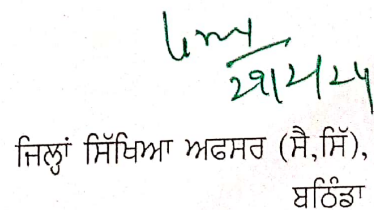 29/4/25
ਜਿਲ੍ਹਾਂ ਸਿੱਖਿਆ ਅਫਸਰ (ਸੈ,ਸਿੱ),
ਬਠਿੰਡਾ